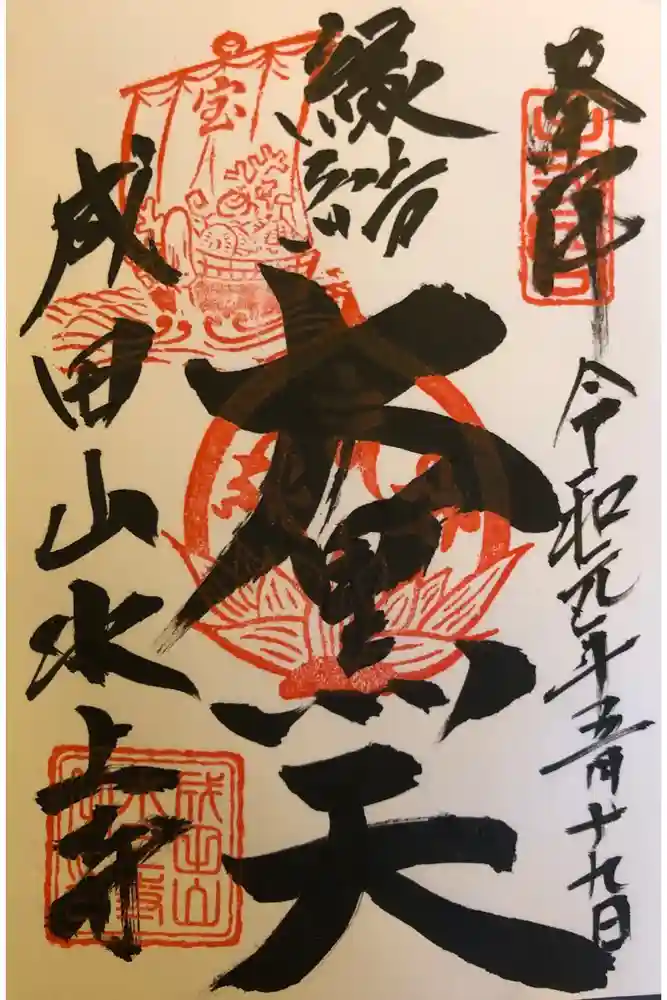 奉拝
令和元年五月十九日
縁結
大黒天
成田山水上寺
宝